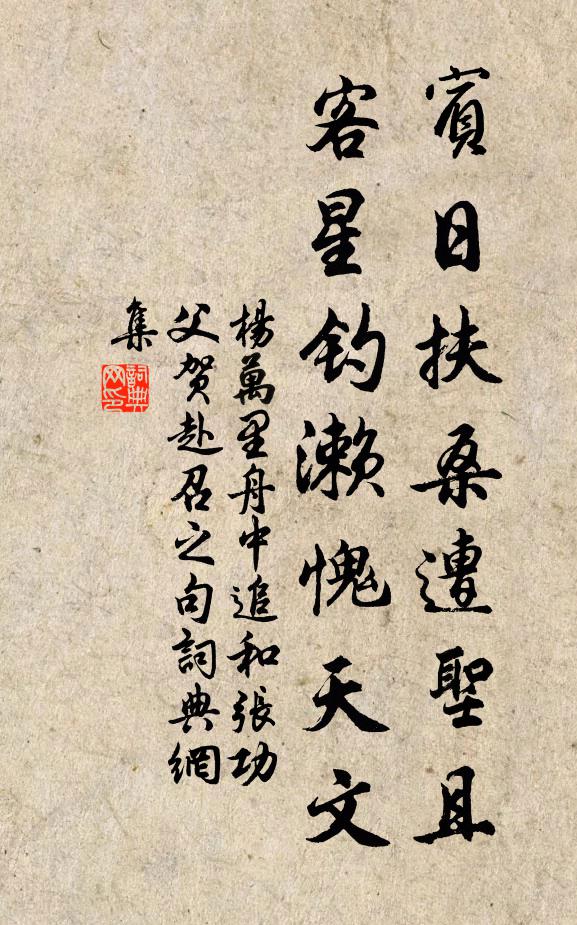 賓日扶桑遭聖且
客星釣瀨愧天文
楊萬里舟中追和張功
父賀赴召之句詞典網
集
詞典
网印